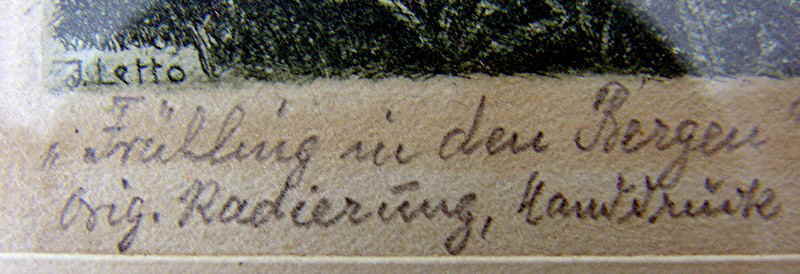 J. Letto
„Frühling in den Bergen"
Orig. Radierung, Handdruck